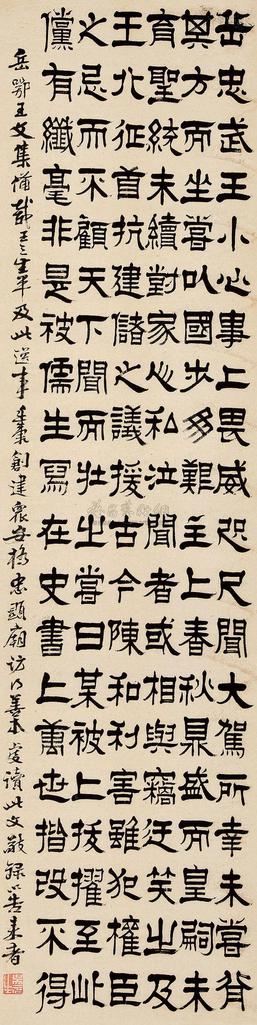 岳忠武王小心事上畏威咫尺聞大駕所幸未嘗背
其方而坐嘗以國步多難主上春秋鼎盛而皇嗣未
育聖統未續對家人私泣聞者或相與竊迂笑之及
王北征首抗建儲之議援古今陳和利害雖犯權臣
之忌而不顧天下聞而壯之嘗曰某被上拔擢至此
儻有纖毫非是被儒生寫在史書上萬世揩改不得
岳鄂王文集備載王之生平及此逸事 創建眾安橋忠顯廟訪 善本 讀此文敬錄 告來者